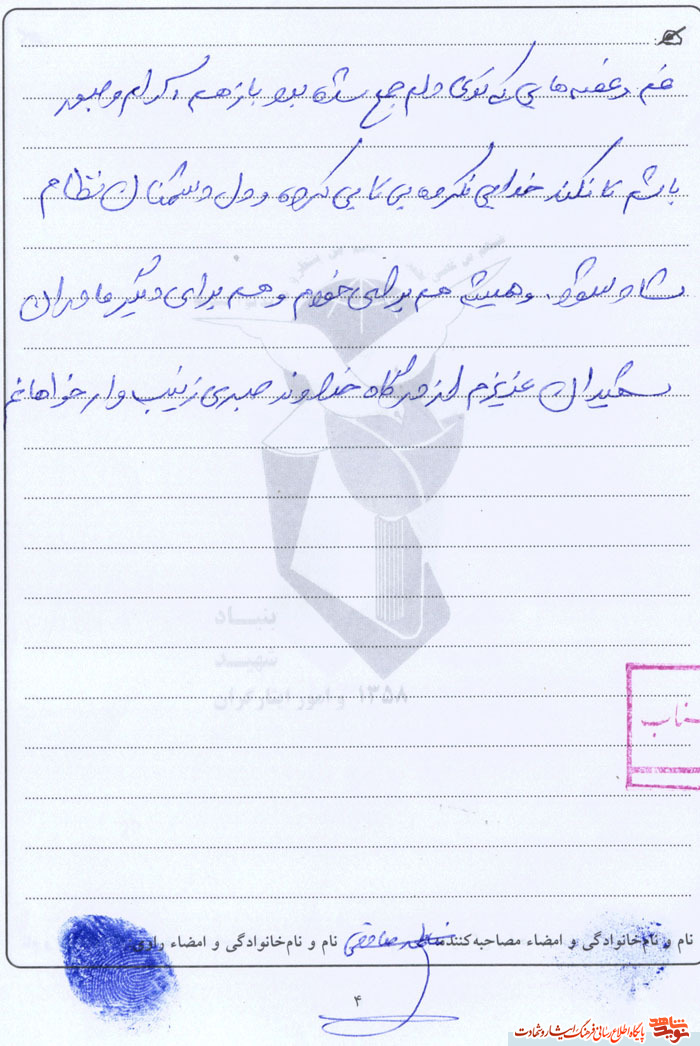 غم و غصه هایی که توی دلم جمع شده بود باز هم آرام و صبور
باشم تا نکند خدایی نکرده بی تابی کرده و دل دشمنان نظام
شاد بشود. و همیشه هم برای خودم و هم برای دیگر مادران
شهیدان عزیزم از درگاه خداوند صبری زینب وار خواهانم
بنیاد
شهید
و امور ایثارگران ۱۳۵۸
نام و نام‌خانوادگی و امضاء مصاحبه‌کننده نام و نام‌خانوادگی و امضاء راوی
۴
نوید شاهد پایگاه اطلاع رسانی فرهنگ ایثار و شهادت